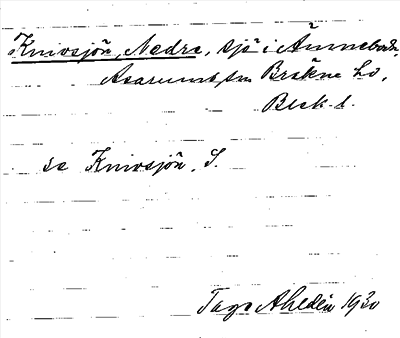 Knivsjön, Nedre, sjö i Ånneboda,
Asarums sn Bräkne hd,
Blek. l.
se Knivsjön, S.
Tage Ahldén 1930